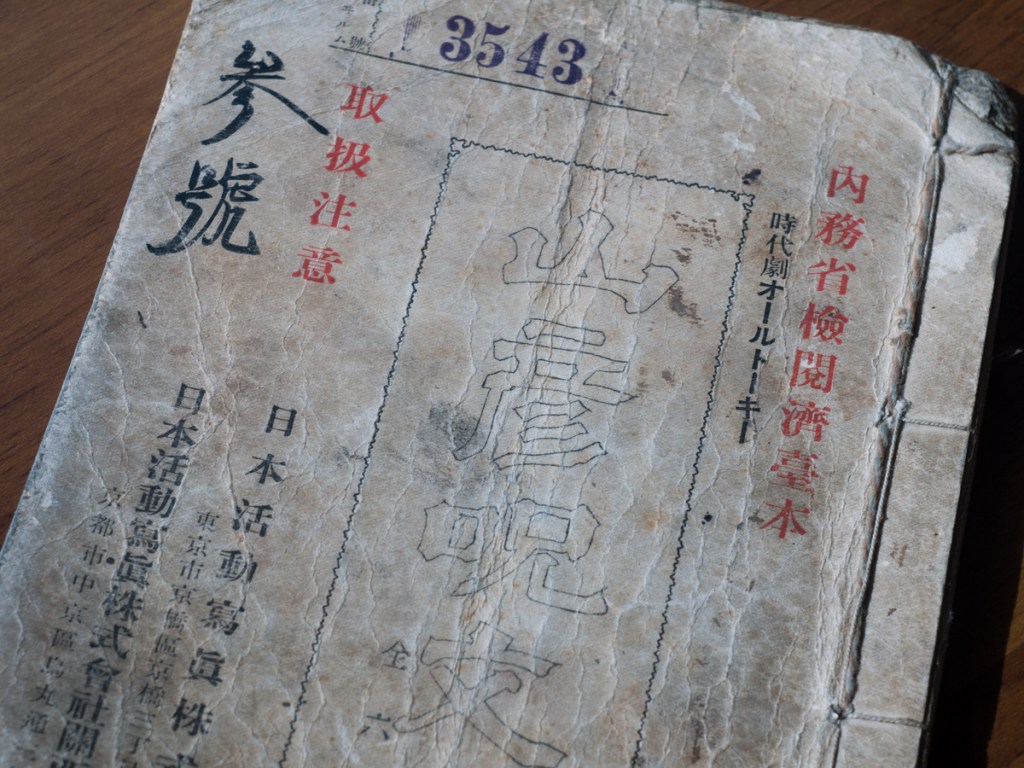 內務省檢閱濟臺本
時代劇オールトーキー
山彦呪文
全六
3543
取扱注意
参號
日本活動寫眞株式
東京市京橋區京橋三丁
日本活動寫眞株式會社關
京都市中京區烏丸通